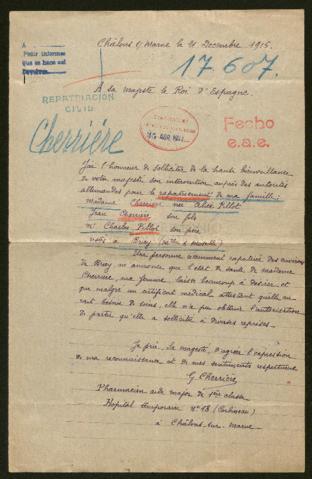 Châlons s/ Marne le 21 Décembre 1915.
17.607.
A sa majesté le Roi d'Espagne.
REPATRIACION
CIVIL
Cherrière
Fecho
e.a.e.
J'ai l'honneur de solliciter de la haute bienveillance
de votre majesté son intervention auprès des autorités
allemandes pour le rapatriement de ma famille:
madame Cherrière née Alice Pillot
Jean Cherrière son fils
Mr Charles Pillot son père
restés à Briey (Mthe & Moselle)
Une personne récemment rapatriée des environs
de Briey m'annonce que l'état de santé de madame
Cherrière, ma femme, laisse beaucoup à désirer et
que malgré un certificat médical attestant qu'elle
avait besoin de soins, elle n'a pu obtenir l'autorisation
de partir qu'elle a sollicitée à diverses reprises.
Je prie sa majesté, d'agréer l'expression
de ma reconnaissance et de mes sentiments respectueux
G. Cherrière
Pharmacien aide major de 1ère classe
Hopital temporaire N° 18
à Châlons-sur-Marne